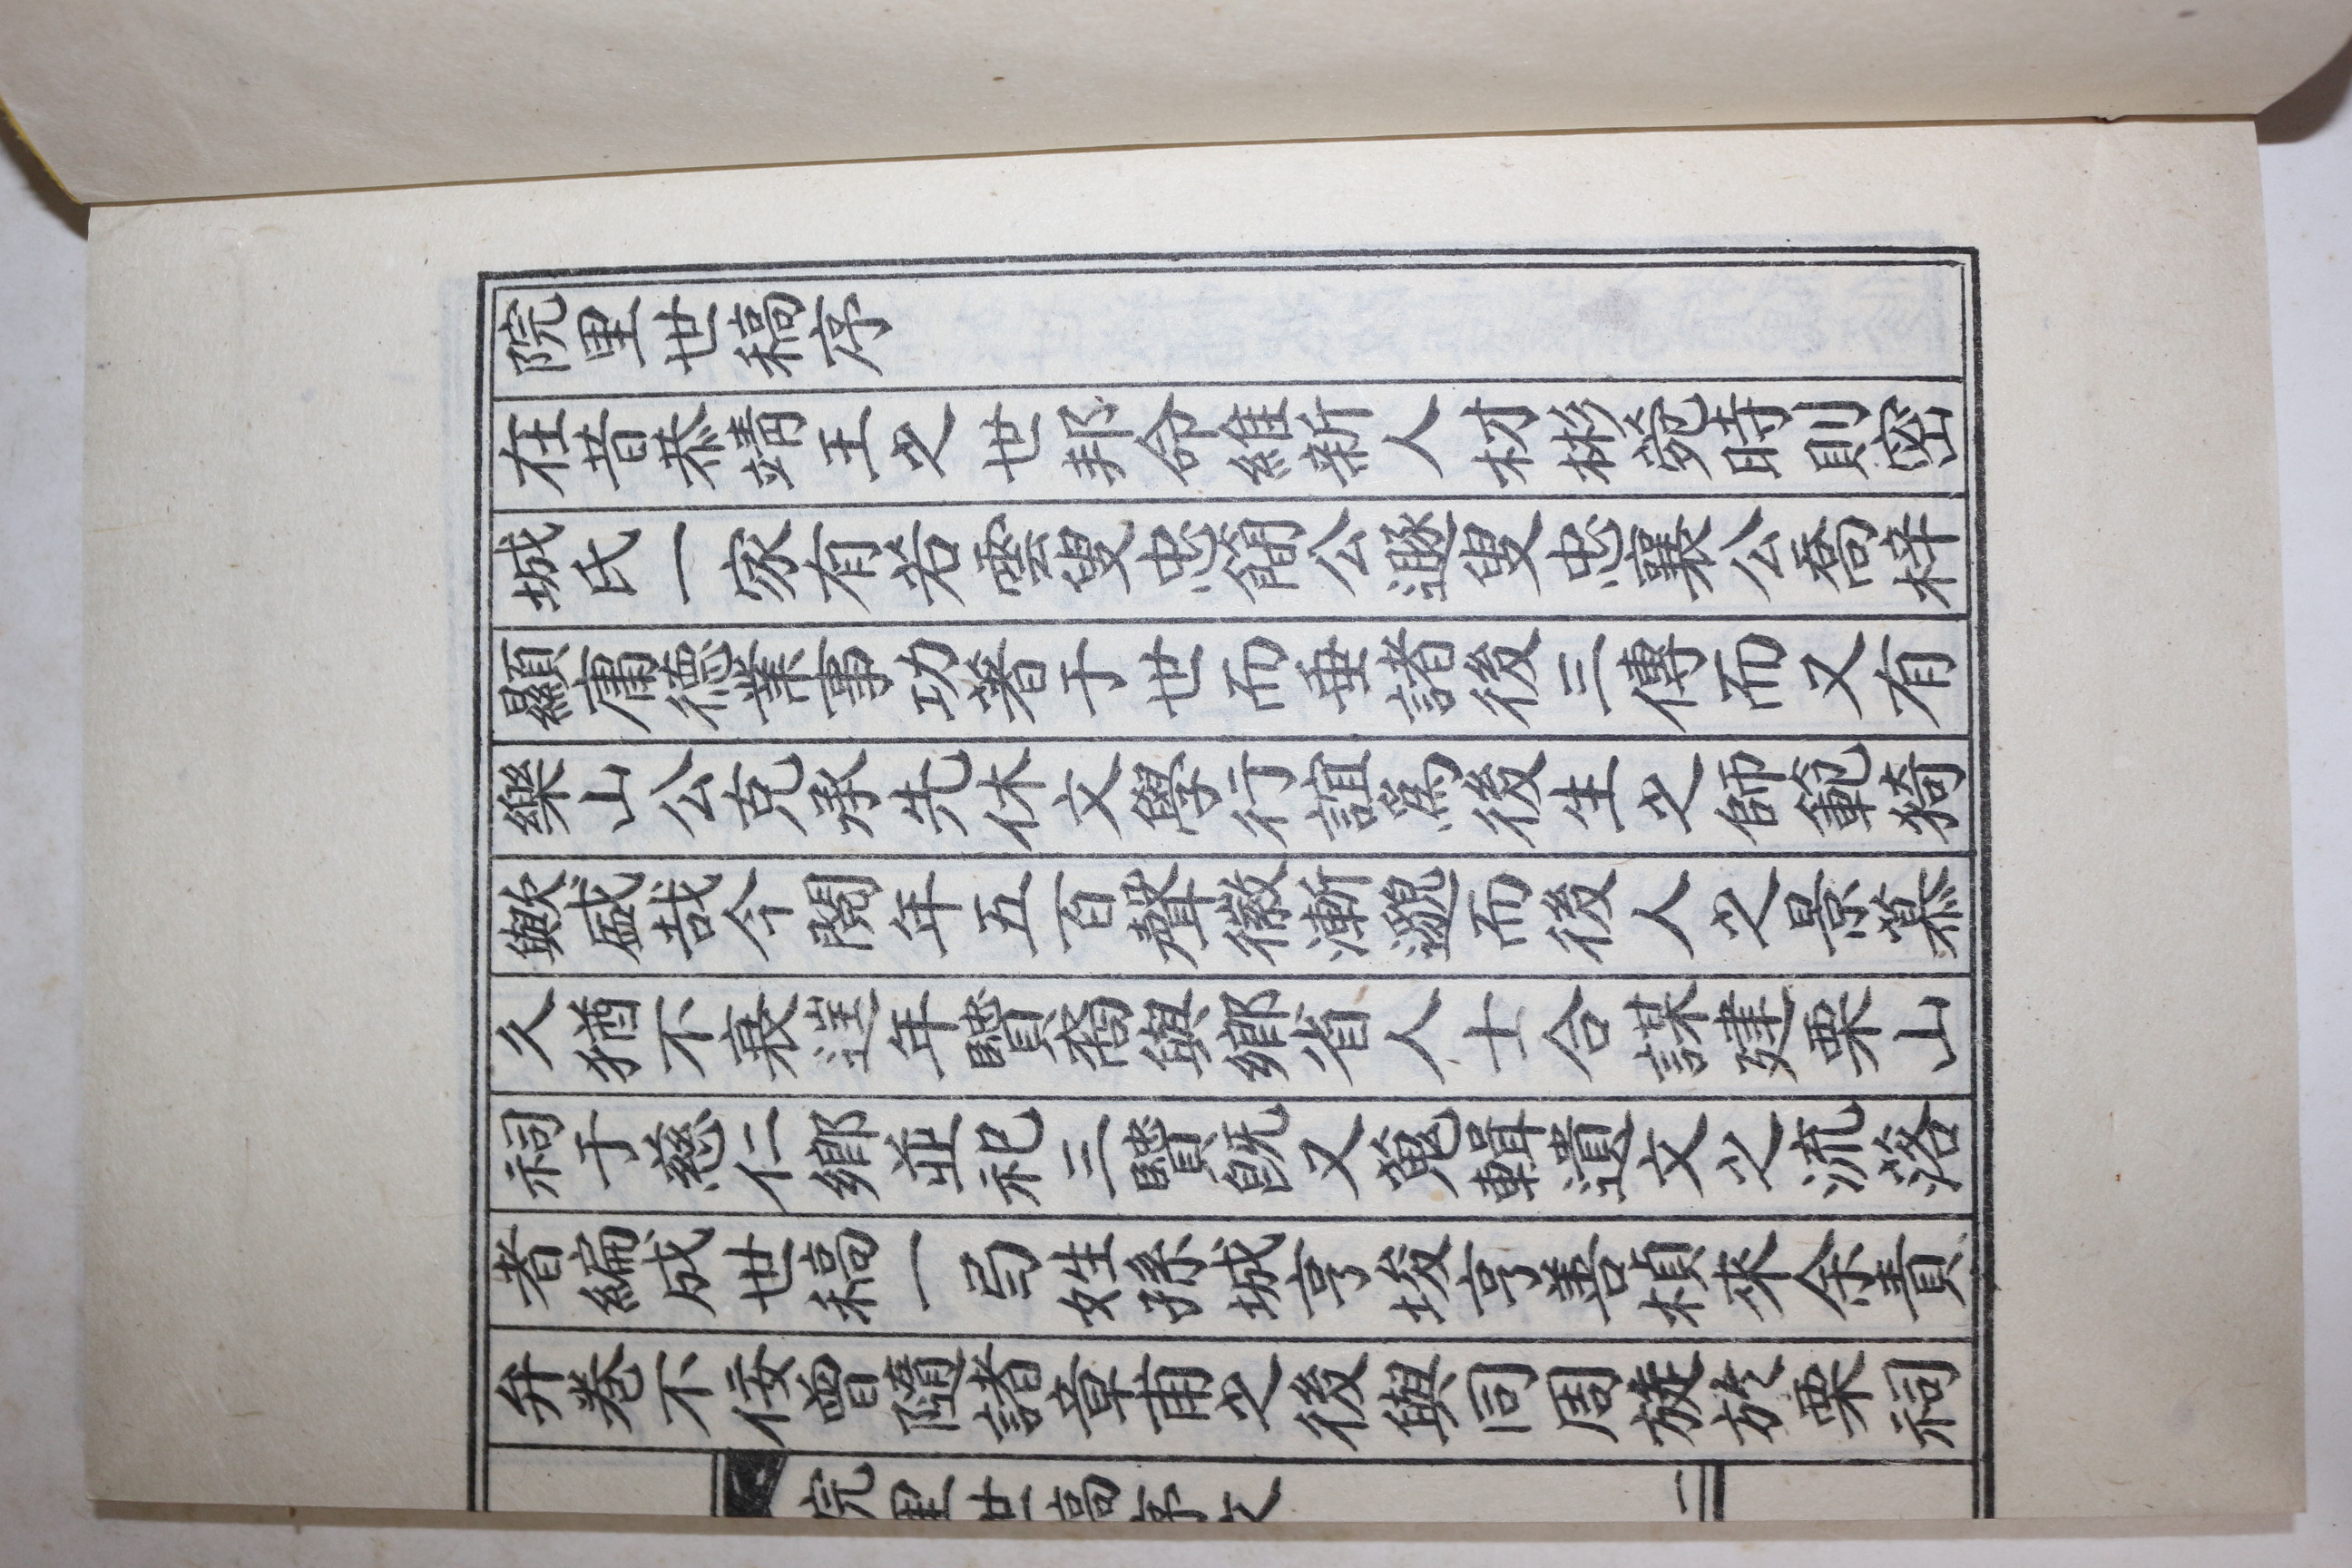 院里世稿序
在昔恭靖王之世邦命維新人材彬菀時則密
城氏一家有若雲叟忠簡公遯叟忠襄公喬梓
顯庸德業事功著于世而垂諸後三傳而又有
樂山公克承先休文學行誼爲後生之師範猗
歟盛哉今閱年五百聲徽漸邈而後人之景慕
久猶不衰逞年賢裔與鄉省人士合謀建栗山
祠于慈仁鄉並祀三賢旣又蒐輯遺文之流落
者編成世稿一弓姓孫城亨埈亨善楨來余責
弁卷不佞曾隨諸章甫之後與同周旋於栗祠
院里世稿序文
二